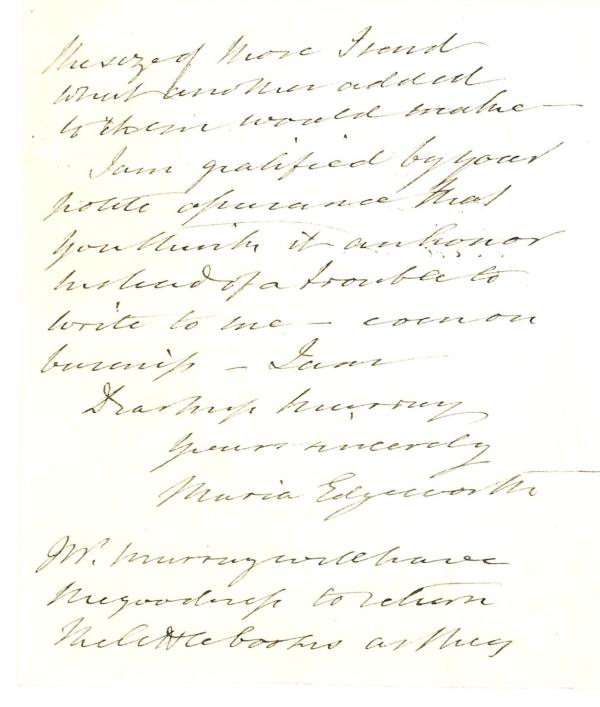 the size of those I send
what another added
to them would make —
I am gratified by your
polite assurance that
you think it an honor
instead of a trouble to
write to me — even on
business — I am
Dear Miss Murray
yours sincerely
Maria Edgeworth
Mr. Murray will have
the goodness to return
the little books as they